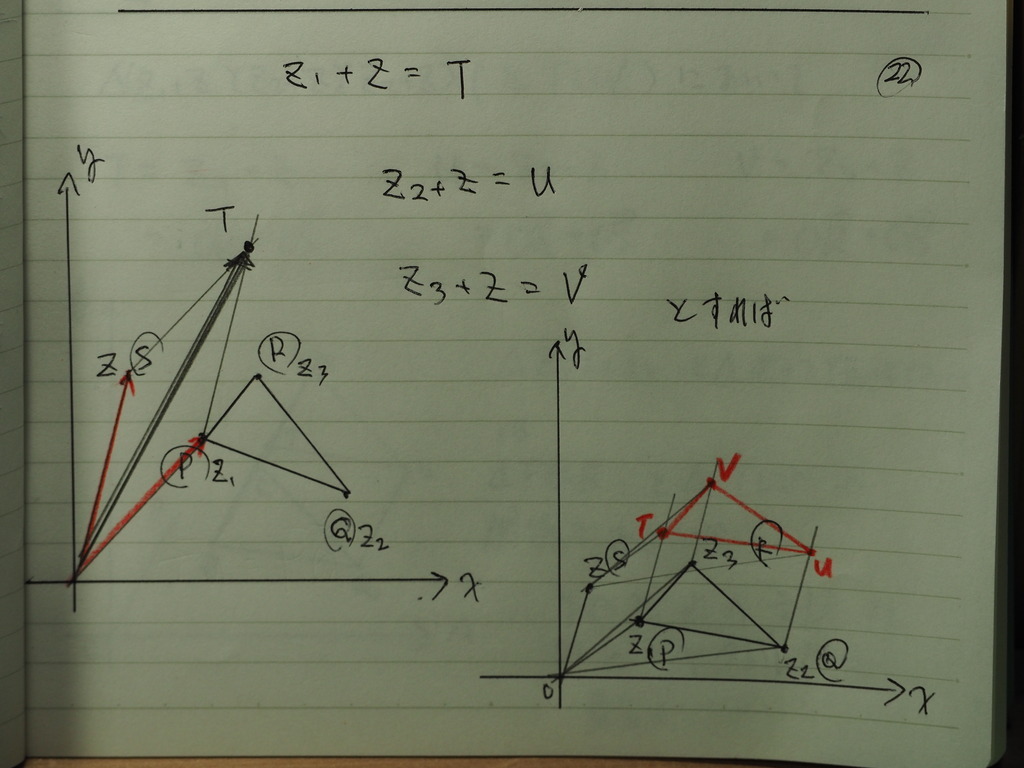 z₁ + z = T
㉒
z₂ + z = U
z₃ + z = V
とすれば
y
T
z Ⓢ
Ⓡ z₃
Ⓟ z₁
Ⓠ z₂
x
y
V
T
z Ⓢ
z₃ Ⓡ
U
z₁ Ⓟ
z₂ Ⓠ
O
x